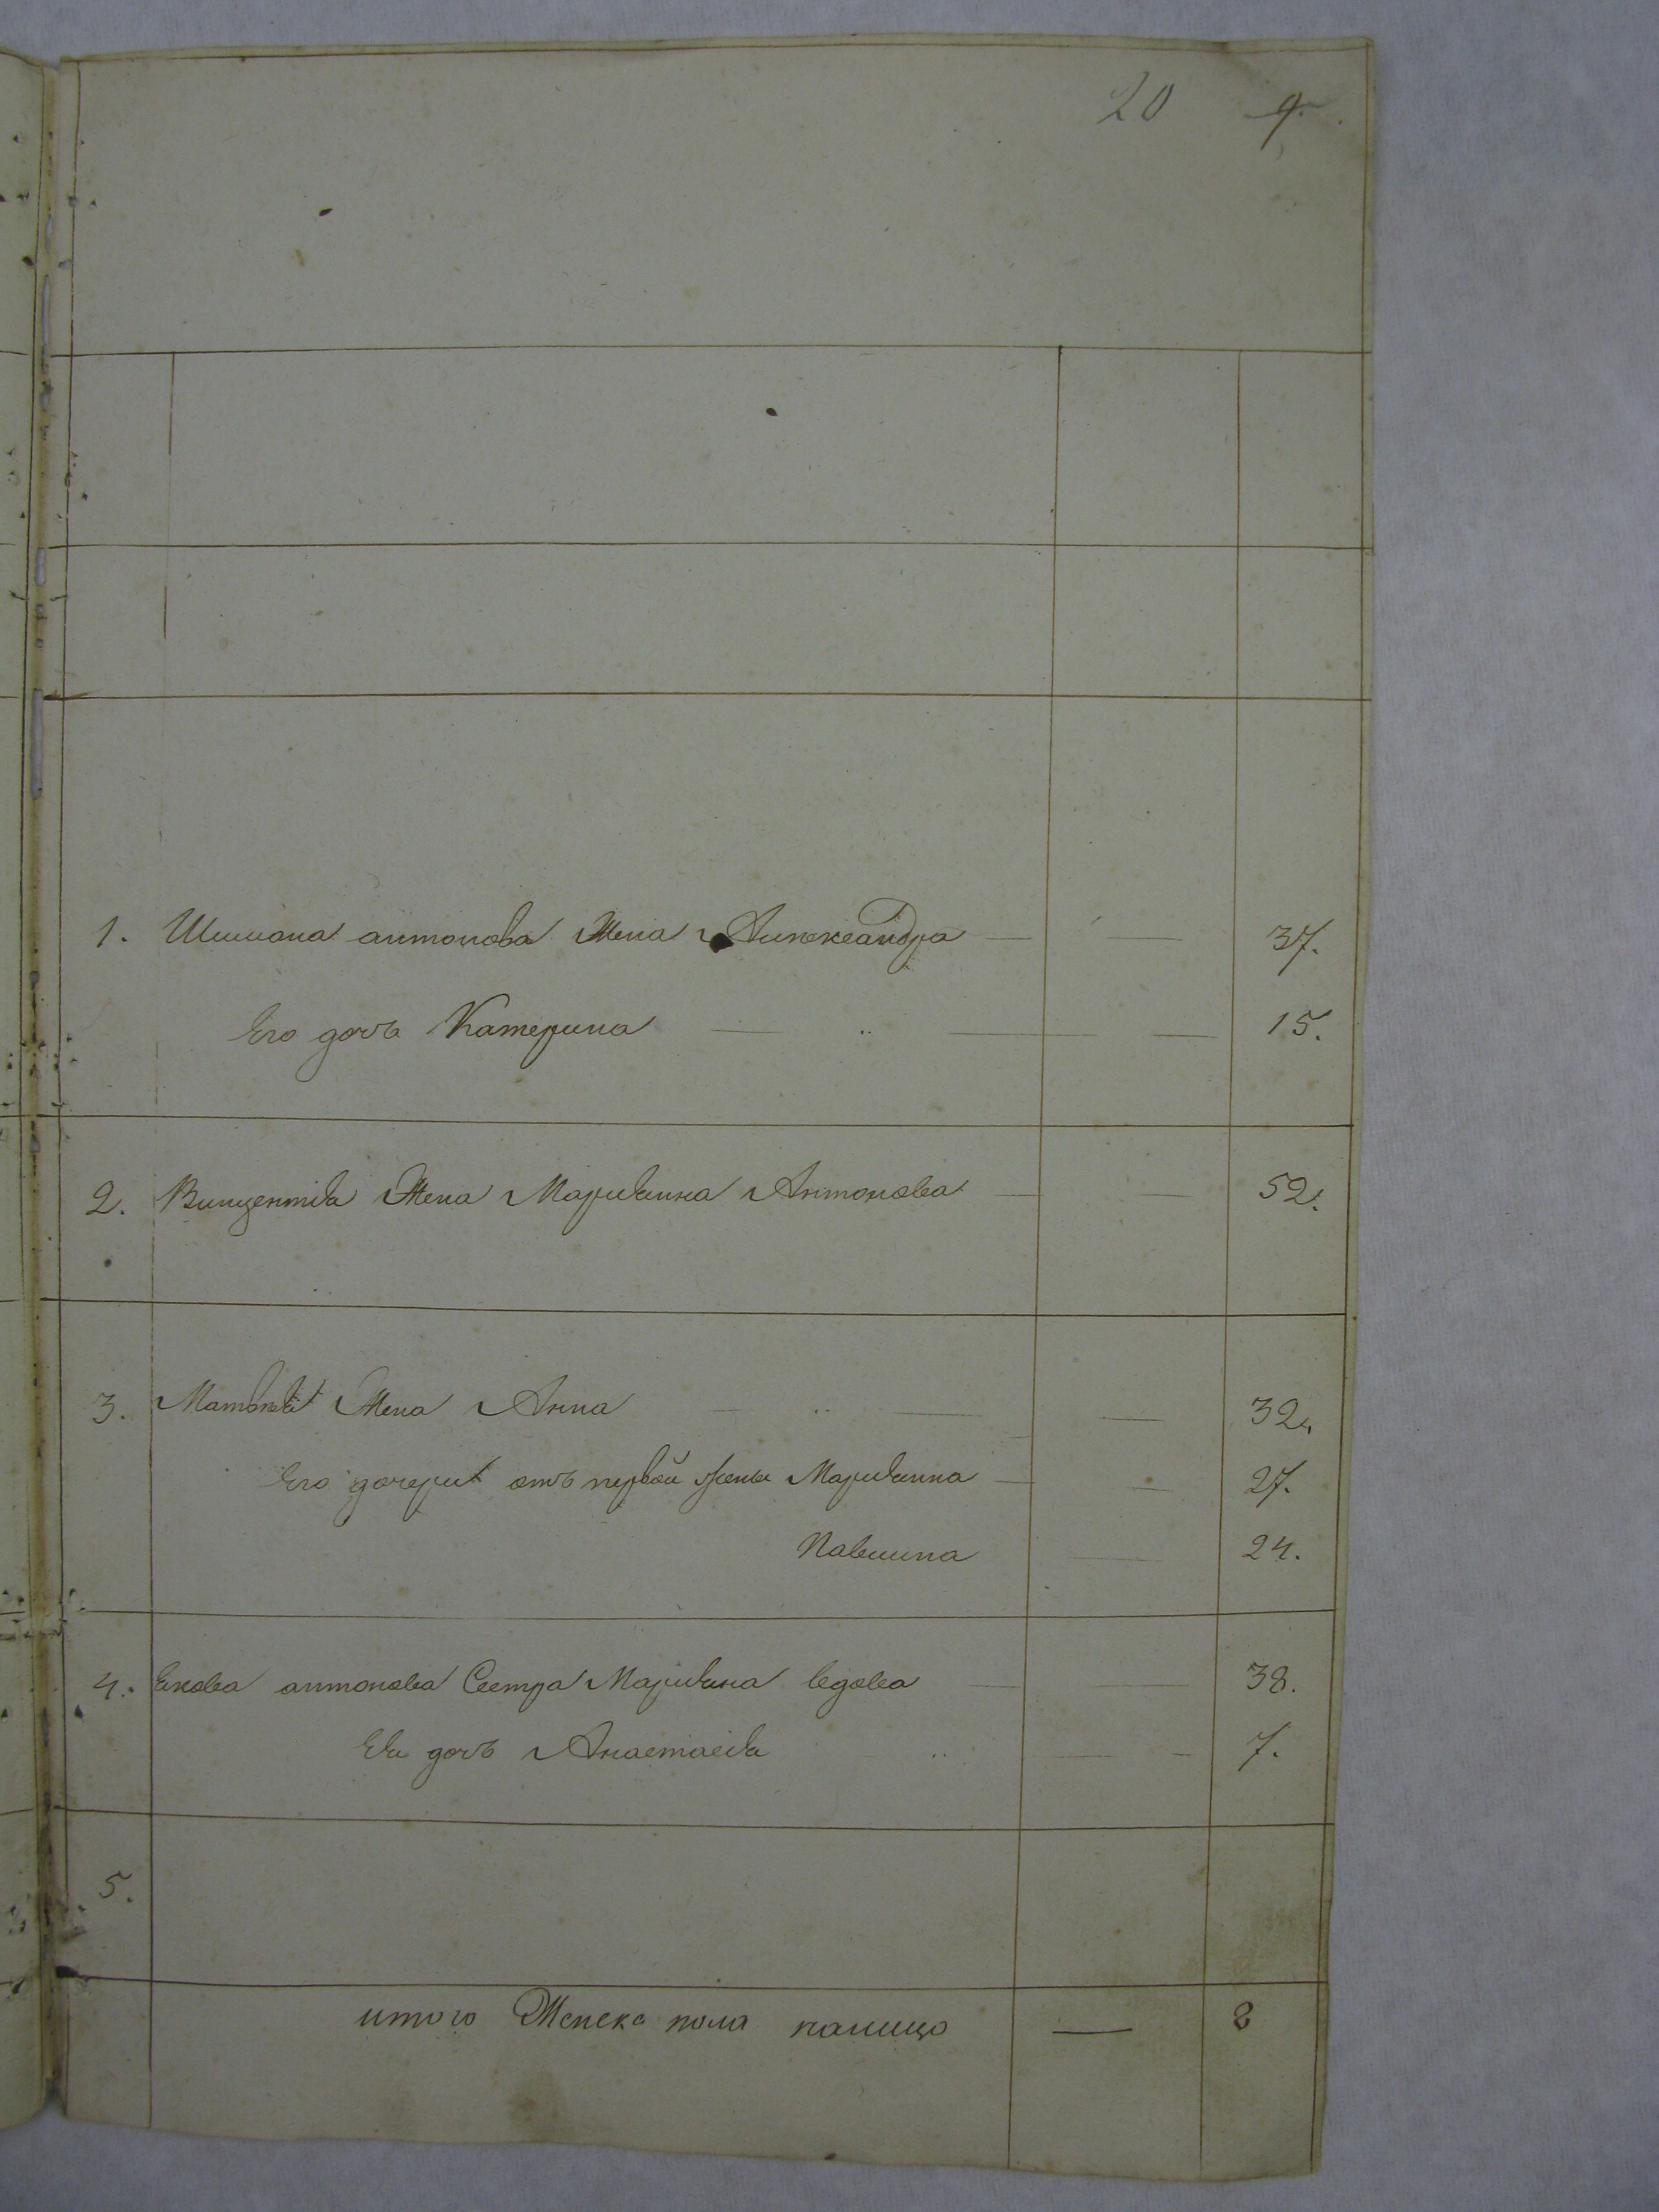 20 9.
1. Шимана антонова Жена Александра — — 37.
Его дочь Катерина — — 15.
2. Винцентія Жена Маріанна Антонова — — 52.
3. Матвея Жена Анна — — 32.
Его дочери отъ первой жены Маріанна — — 27.
Павлина — 24.
4. антонова Сестра Маріана вдова — — 38.
Ея дочь Анастасія — — 7.
5.
итого Женска пола налицо — 8